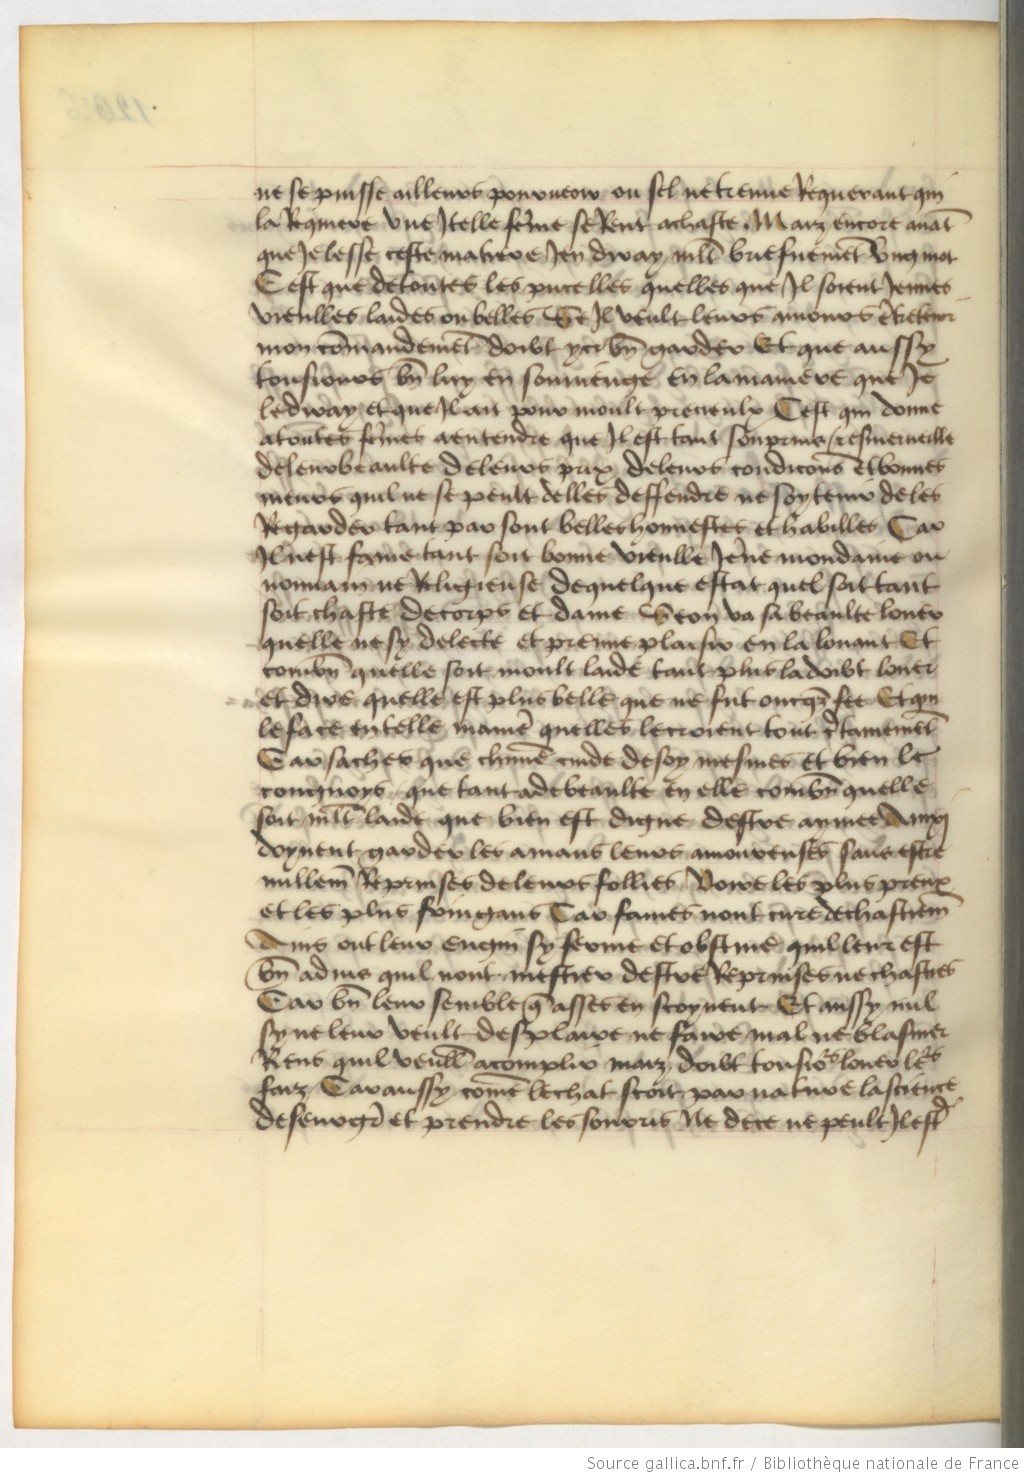 ne se puisse ailleurs pourueoir ou sel ne treuue Requerant qui
la Requiere Vne Jtelle fem̃e se Rent a chaste. Marz encore auãt
que Je lesse ceste matiere Jen diray mlt̃ briefuemẽt Vng mot
Cest que de toutes les pucelles quelles que Jl soient Jeunes
vieulles laides ou belles Se Jl veult leurs amours
mon cõmandemẽt doibt ycy bñ garder Et que aussy
tousiours bñ luy en souuienge en la maniere que Je
le diray et que Jl ait pour moult precieulx Cest qui donne
a toutes fem̃es a entendre que Jl est tant sourprins resmerueille
de leur beaulte de leurs prix de leurs condicõns et bonnes
meurs quil ne se peult delles deffendre ne soy tenir de les
Regarder tant par sont belles honnestes et habilles Car
Jl nest fame tant soit bonne vieulle Jeũe mondaine ou
nonnain ne Religieuse de quelque estat quel soit tant
soit chaste de corps et dame Se on va sa beaulte louer
quelle ne sy delecte et prenne plaisir en la louant Et
combñ quelle soit moult laide tant plus la doibt louer
et dire quelle est plus belle que ne fut oncq̃s fee Et qui
le face en telle manie῀ quelles le croient tout c̃tainemẽt
Car saches que chũne cuide de soy mesmes et bien le
congnoys que tant a de beaulte en elle combñ quelle
soit mlt̃ laide que bien est digne destre aymee Ainxi
doyuent garder les amans leurs amoureuses sans estre
nullem̃ Reprinses de leurs follies Voire les plus preux
et les plus fringans Car fames nont cure de chastiem̃
Ains ont leur engin sy ferme et obstine quil leur est
bñ aduis quil nont mestier destre Reprinses ne chastiees
Car bñ leur semble q̃ asses en scoyuent Et aussy nul
sy ne leur veult desplaire ne faire mal ne blasmer
Riens quil veull̃ acomplir marz doibt tousio῀s louer le῀s
faiz Car aussy cõme le chat scoit par nature la science
de seurgi῀ et prendre les souris Ne de ce ne peult Jl est῀